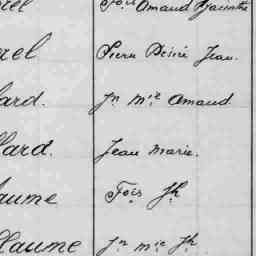 rel Fois Amand Hyacinthe
rel Pierre Désiré Jean.
lard. Jn Mie Amand
llard. Jean Marie.
aume Fois Jh
llaume Jn Mie Jh